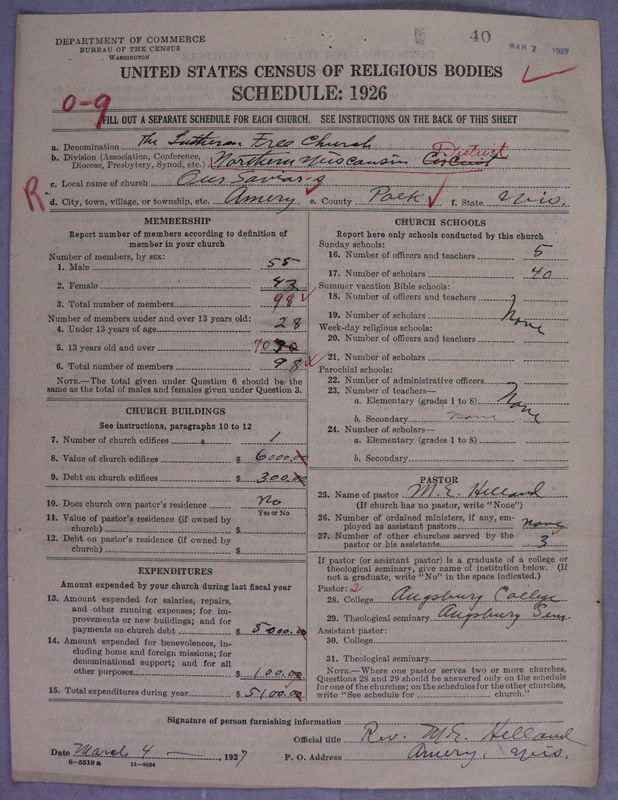 DEPARTMENT OF COMMERCE
BUREAU OF THE CENSUS
WASHINGTON
40
MAR 2 1927
UNITED STATES CENSUS OF RELIGIOUS BODIES
SCHEDULE: 1926
0-9
FILL OUT A SEPARATE SCHEDULE FOR EACH CHURCH. SEE INSTRUCTIONS ON THE BACK OF THIS SHEET
a. Denomination The Lutheran Free Church
b. Division (Association, Conference, Diocese, Presbytery, Synod, etc.) Northern Wisconsin Circuit District
c. Local name of church Our Saviors
R
d. City, town, village, or township, etc. Amery e. County Polk f. State Wis.
MEMBERSHIP
Report number of members according to definition of
member in your church
Number of members, by sex:
1. Male 55
2. Female 43
3. Total number of members 98
Number of members under and over 13 years old:
4. Under 13 years of age 28
5. 13 years old and over 70
6. Total number of members 98
NOTE.—The total given under Question 6 should be the
same as the total of males and females given under Question 3.
CHURCH BUILDINGS
See instructions, paragraphs 10 to 12
7. Number of church edifices 1
8. Value of church edifices $ 6000.00
9. Debt on church edifices $ 300.00
10. Does church own pastor's residence No
Yes or No
11. Value of pastor's residence (if owned by
church) $
12. Debt on pastor's residence (if owned by
church) $
EXPENDITURES
Amount expended by your church during last fiscal year
13. Amount expended for salaries, repairs,
and other running expense; for im-
provements or new buildings; and for
payments on church debt $ 5000.00
14. Amount expended for benevolences, in-
cluding home and foreign missions; for
denominational support; and for all
other purposes $ 100.00
15. Total expenditures during year $ 5100.00
CHURCH SCHOOLS
Report here only schools conducted by this church
Sunday schools:
16. Number of officers and teachers 5
17. Number of scholars 40
Summer vacation Bible schools:
18. Number of officers and teachers
19. Number of scholars None
Week-day religious schools:
20. Number of officers and teachers
21. Number of scholars
Parochial schools:
22. Number of administrative officers
23. Number of teachers—
a. Elementary (grades 1 to 8) None
b. Secondary None
24. Number of scholars—
a. Elementary (grades 1 to 8)
b. Secondary
PASTOR
25. Name of pastor M. E. Helland
(If church has no pastor, write "None")
26. Number of ordained ministers, if any, em-
ployed as assistant pastors none
27. Number of other churches served by the
pastor or his assistants 3
If pastor (or assistant pastor) is a graduate of a college or
theological seminary, give name of institution below. (If
not a graduate, write "No" in the space indicated.)
Pastor: 2
28. College Augsburg College
29. Theological seminary Augsburg Sem.
Assistant pastor:
30. College
31. Theological seminary
NOTE.—Where one pastor serves two or more churches,
Questions 28 and 29 should be answered only on the schedule
for one of the churches; on the schedules for the other churches,
write "See schedule for church."
Signature of person furnishing information
Official title Rev. M. E. Helland
Date March 4, 1927 P. O. Address Amery, Wis.
8-5518 a 11-9054